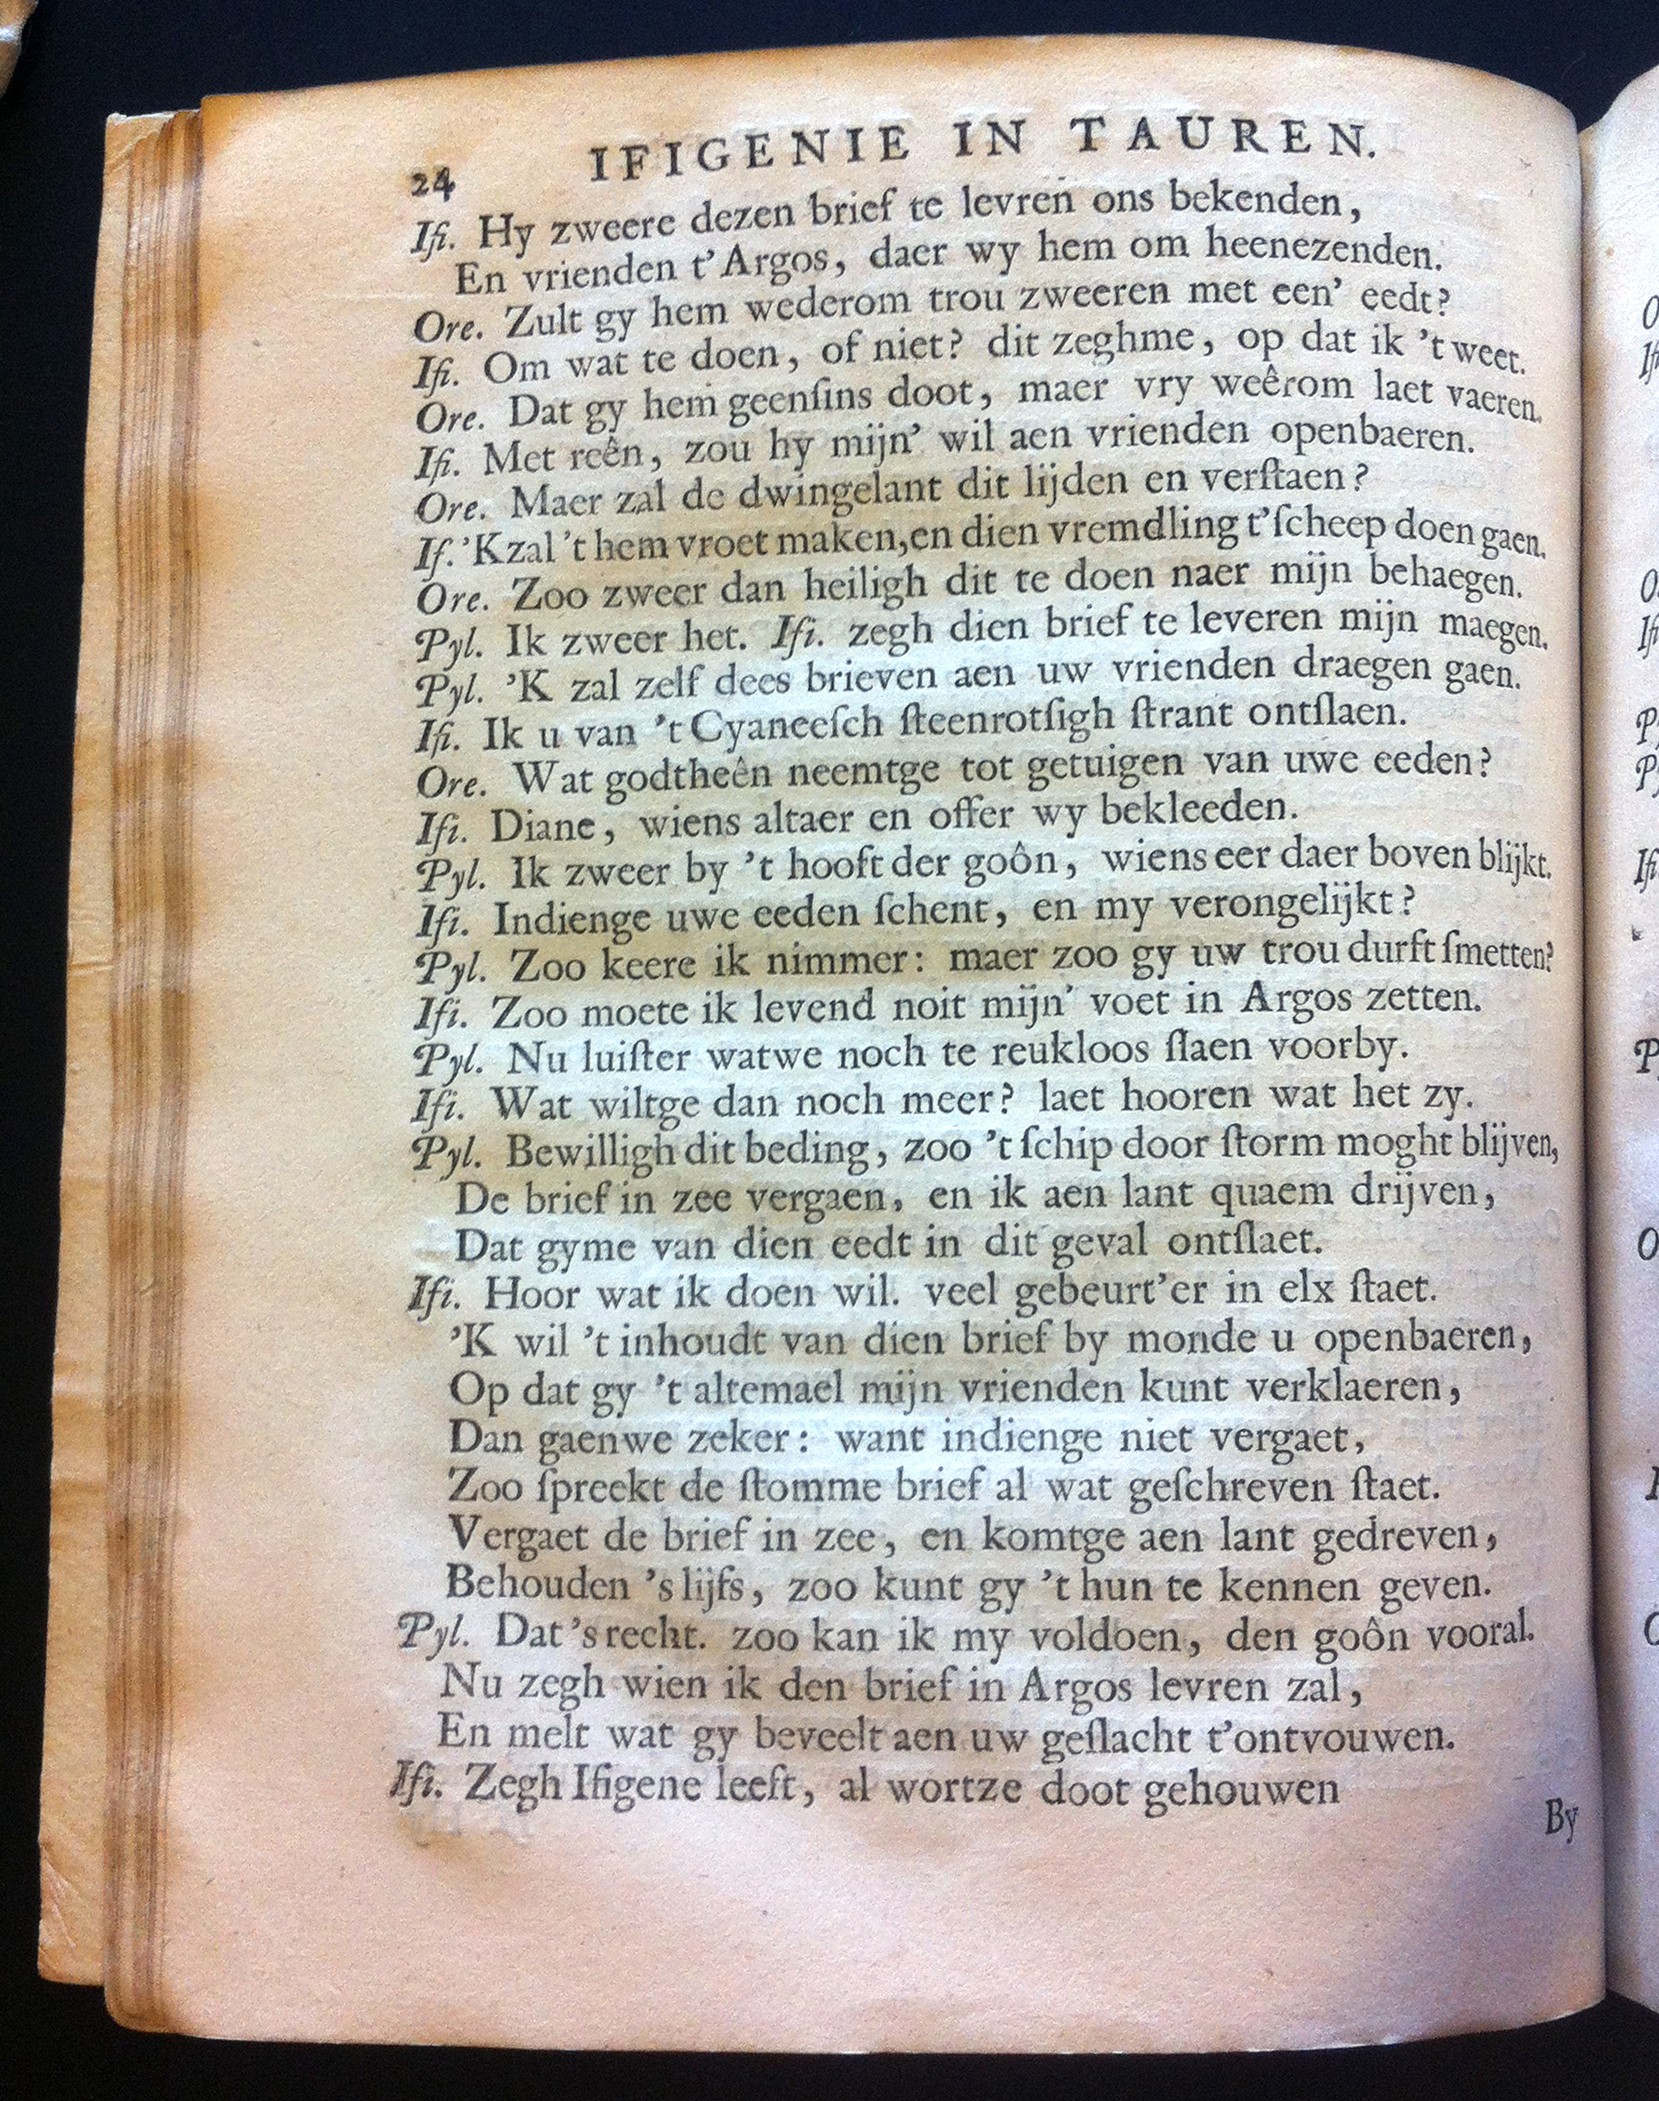 24 IFIGENIE IN TAUREN.
Ifi. Hy zweere dezen brief te levren ons bekenden,
En vrienden t'Argos, daer wy hem om heenezenden.
Ore. Zult gy hem wederom trou zweeren met een' eedt?
Ifi. Om wat te doen, of niet? dit zeghme, op dat ik 't weet.
Ore. Dat gy hem geenſins doot, maer vry weêrom laet vaeren.
Ifi. Met reên, zou hy mijn' wil aen vrienden openbaeren.
Ore. Maer zal de dwingelant dit lijden en verſtaen?
If. 'K zal 't hem vroet maken, en dien vremdling t'ſcheep doen gaen.
Ore. Zoo zweer dan heiligh dit te doen naer mijn behaegen.
Pyl. Ik zweer het. Ifi. zegh dien brief te leveren mijn maegen.
Pyl. 'K zal zelf dees brieven aen uw vrienden draegen gaen.
Ifi. Ik u van 't Cyaneeſch ſteenrotſigh ſtrant ontſlaen.
Ore. Wat godtheên neemtge tot getuigen van uwe eeden?
Ifi. Diane, wiens altaer en offer wy bekleeden.
Pyl. Ik zweer by 't hooft der goôn, wiens eer daer boven blijkt.
Ifi. Indienge uwe eeden ſchent, en my verongelijkt?
Pyl. Zoo keere ik nimmer: maer zoo gy uw trou durft ſmetten?
Ifi. Zoo moete ik levend noit mijn' voet in Argos zetten.
Pyl. Nu luiſter watwe noch te reukloos ſlaen voorby.
Ifi. Wat wiltge dan noch meer? laet hooren wat het zy.
Pyl. Bewilligh dit beding, zoo 't ſchip door ſtorm moght blijven,
De brief in zee vergaen, en ik aen lant quaem drijven,
Dat gyme van dien eedt in dit geval ontſlaet.
Ifi. Hoor wat ik doen wil. veel gebeurt'er in elx ſtaet.
'K wil 't inhoudt van dien brief by monde u openbaeren,
Op dat gy 't altemael mijn vrienden kunt verklaeren,
Dan gaenwe zeker: want indienge niet vergaet,
Zoo ſpreekt de ſtomme brief al wat geſchreven ſtaet.
Vergaet de brief in zee, en komtge aen lant gedreven,
Behouden 's lijfs, zoo kunt gy 't hun te kennen geven.
Pyl. Dat 's recht. zoo kan ik my voldoen, den goôn vooral.
Nu zegh wien ik den brief in Argos levren zal,
En melt wat gy beveelt aen uw geſlacht t'ontvouwen.
Ifi. Zegh Ifigene leeft, al wortze doot gehouwen
By